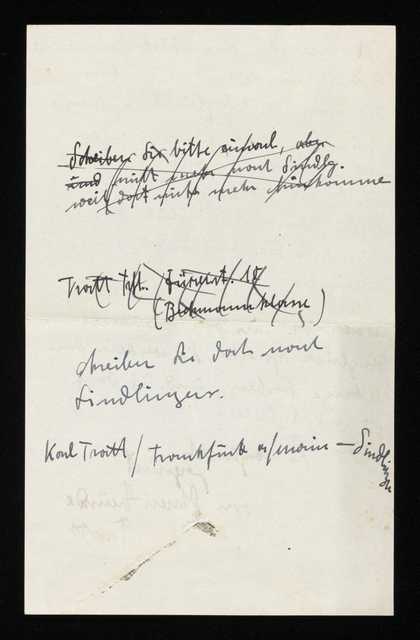 Schreiben Sie bitte einmal, aber
und nicht mehr nach Sindlg.
weil dort nicht mehr hinkomme
Tratt
(Beckmannklasse)
schreiben Sie doch nach
Sindlingen.
Karl Tratt / Frankfurt a/main – Sindlingen